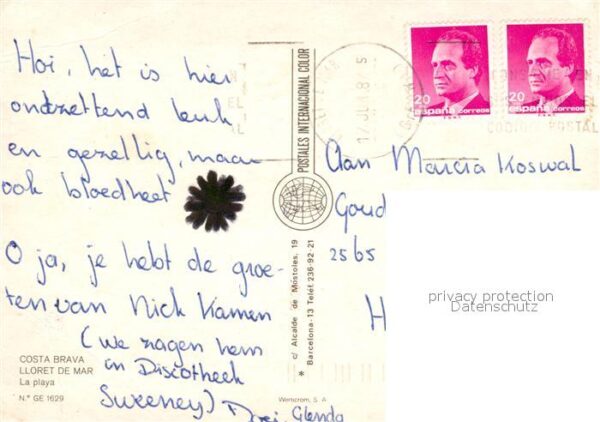 Hoi, het is hier
ondzettend leuk
en gezellig, maar
ook bloedheet
O ja, je hebt de groe-
ten van Nick Kamen
(we zagen hem
in Discotheek
Sweeney) Doei, Glenda
COSTA BRAVA
LLORET DE MAR
La playa
N.º GE 1629
POSTALES INTERNACIONAL COLOR
c/ Alcalde de Móstoles, 19
Barcelona-13 Teléf. 236-92-21
*
Werncrom, S. A.
20
españa correos
20
españa correos
Aan Marcia Koswal
Goud
2565
H
privacy protection
Datenschutz